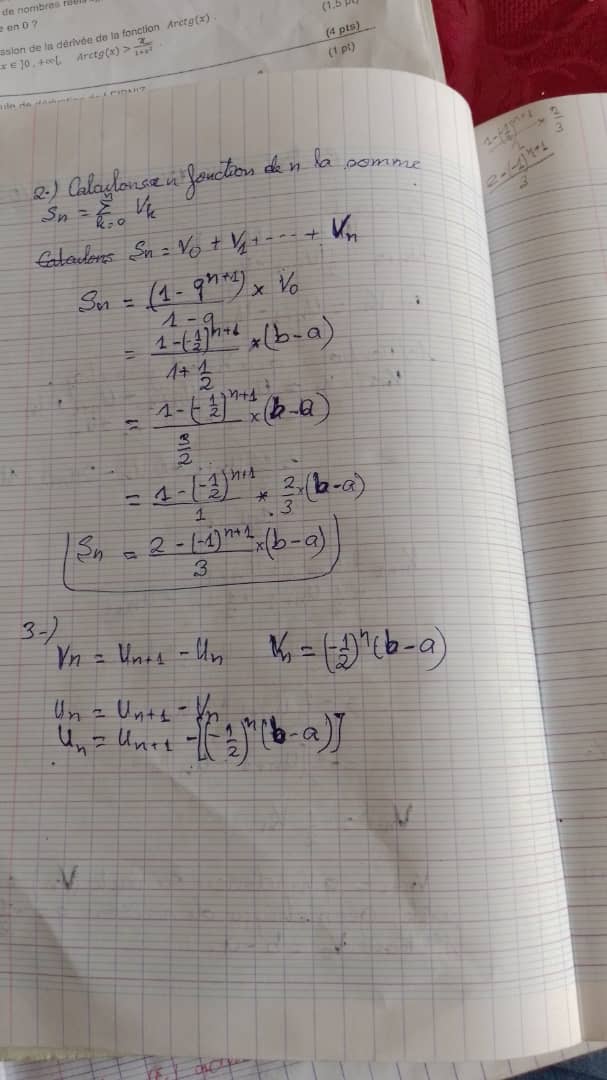 de nombres
e en 0 ?
(1,5
ssion de la dérivée de la fonction Arctg(x).
(4 pts)
x ∈ ]0, +∞[, Arctg(x) > x/(1+x²)
(1 pt)
1-(-1/2)^(n+1) × 2/3
2-(-1)^(n+1)/3
2-) Calculons en fonction de n la somme
Sn = Σ_(k=0)^n Vk
Calculons Sn = V0 + V1 + ---- + Vn
Sn = (1 - q^(n+1))/(1 - q) × V0
= (1-(-1/2)^(n+1))/(1+1/2) × (b-a)
= (1-(-1/2)^(n+1))/(3/2) × (b-a)
= (1-(-1/2)^(n+1))/1 × 2/3 × (b-a)
Sn = (2-(-1)^(n+1))/3 × (b-a)
3-)
Vn = Un+1 - Un Vn = (-1/2)^n (b-a)
Un = Un+1 - Vn
Un = Un+1 - [(-1/2)^n (b-a)]